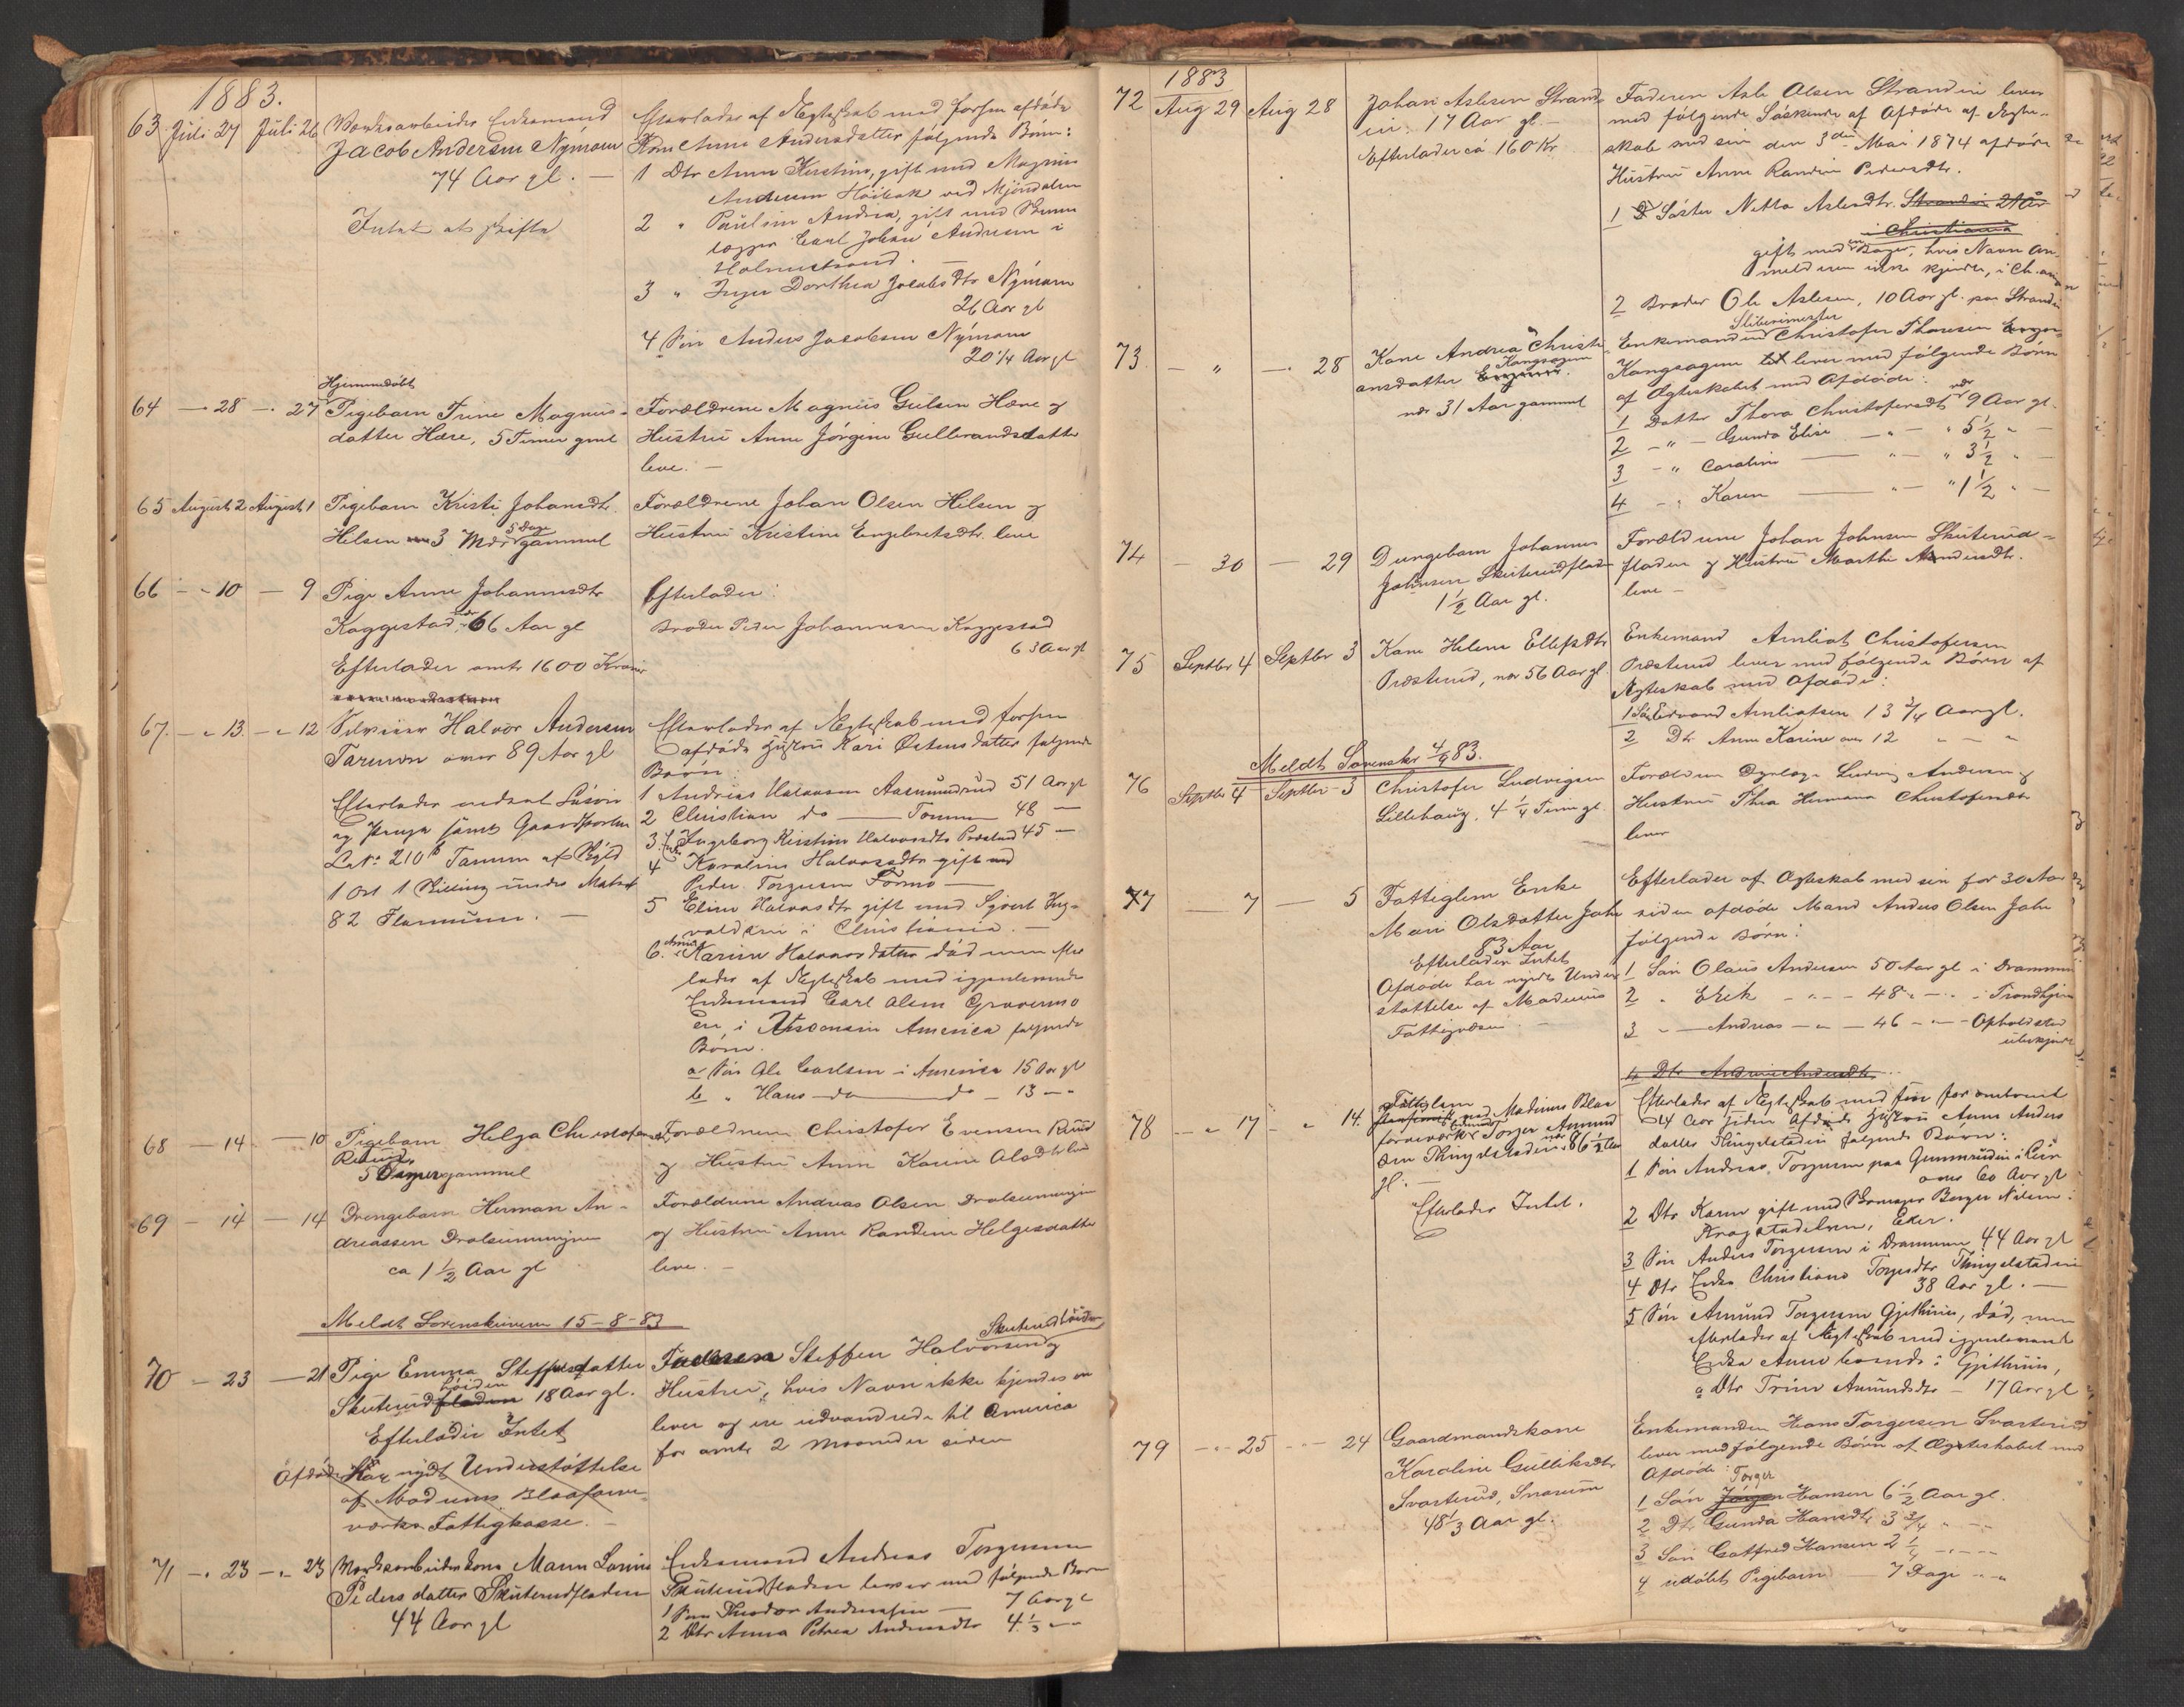 1883.
63. Juli 27 Juli 26
Værksarbeider Enkemand
Jacob Andersen Nymoen
74 Aar gl. —
Intet at skifte
Efterlader af Ægteskab med forhen afdøde
Kone Anne Andersdatter følgende Børn:
1 Dtr Anne Kirstine, gift med Magnus
Andersen Höibak ved Mjöndalen
2 " Pauline Andrea, gift med
Carl Johan Andersen i
Holmestrand.
3 " Inger Dorthea Jacobsdtr Nymoen
26 Aar gl
4 Sön Anders Jacobsen Nymoen
20 1/4 Aar gl
64 — 28 — 27
Hjemmedöbt
Pigebarn Trine Magnus-
datter Hære, 5 Timer gml
Forældrene Magnus Gulsen Hære og
Hustru Anne Jörgine Gulbrandsdatter
leve. —
65 August 2 August 1
Pigebarn Kristi Johansdtr.
Hilsen 3 Mdr 5 Dage gammel
Forældrene Johan Olsen Hilsen og
Hustru Kristine Engebretsdtr. leve
66 — 10 — 9
Pige Anne Johannesdtr
Kaggestad 66 Aar gl
Efterlader omtr 1600 Kroner
Efterlader:
Broder Peder Johannesen Kaggestad
63 Aar gl
67. — 13. — 12
Halvor Andersen
over 89 Aar gl
Efterlader endeel Lösöre
og Penge samt Gaardparten
Lnr. 210 b Tanum af Skyld
1 Ort 1 Skilling under Matr
82
Efterlader af Ægteskab med forhen
afdøde Hustru Kari Östensdatter følgende
Børn:
1 Andreas Halvorsen Aasmundrud 51 Aar gl
2 Christian do — 48 —
3. Ingeborg Kirstine Halvorsdtr Præstrud 45 —
4 Karoline Halvorsdtr gift med
Peder Torgersen Formo —
5 Eline Halvorsdtr gift med Syvert Ing-
valdsen i Christiania. —
6. Karine Halvorsdatter död men efter
lader af Ægteskab med igjenlevende
Enkemand Carl Olsen
i Wisconsin America følgende
Børn.
a Sön Ole Carlsen i America 15 Aar gl
b " Hans do — do — 13 — "
68 — 14 — 10
Pigebarn Helga Christofersdtr
Ruud
5 Dage gammel
Forældrene Christofer Evensen Ruud
og Hustru Anne Karine Olsdtr leve
69 — 14 — 14
Drengebarn Herman An-
dreassen
ca 1 1/2 Aar gl
Forældrene Andreas Olsen
og Hustru Anne Randine Helgesdatter
leve. —
Meldt Sorenskriveren 15-8-83
70 — 23 — 21
Pige Emma Steffensdatter
Skuterudfladen höiden 18 Aar gl.
Efterlader Intet
Afdöde Har nydt Understöttelse
af Modums Blaafarve-
værks Fattigkasse. —
Skuterudhöiden
Faderen Steffen Halvorsen og
Hustru, hvis Navn ikke kjendes
lever og ere udvandrede til America
for omtr 2 Maaneder siden
71 — 23 — 23
Værksarbeiderkone Maren Lovise
Pedersdatter Skuterudfladen
44 Aar gl
Enkemand Andreas Torgersen
Skuterudfladen lever med følgende Børn
1 Sön Theodor Andreassen — 7 Aar gl
2 Dtr Anna Petrea Andreasdtr 4 1/3 —
1883
72 Aug 29 Aug 28
Johan Aslesen Strand-
in. 17 Aar gl. —
Efterlader ca 160 Kr.
Faderen Asle Olsen Strandin lever
med følgende Söskende af Afdöde af Ægte-
skab med sin den 3die Mai 1874 afdöde
Hustru Anne Randine Pedersdtr.
1 Söster Netta Aslesdtr. Strandin 21 Aar
i Christiania
gift med en Bager, hvis Navn An-
melderen ikke kjender, i Ch.ania
2 Broder Ole Aslesen, 10 Aar gl. paa Strandin
73 — " — 28
Kone Andrea Christi-
ansdatter Kongsagene
nær 31 Aar gammel
Slibermester
Enkemanden Christofer Thoresen
Kongsagene lever med følgende Børn
af Ægteskabet med Afdöde:
1 Datter Thora Christofersdtr nær 9 Aar gl.
2 — " — Gunda Elise — " — " 5 1/2 " —
3 — " Caroline — " — " 3 1/2 " —
4 — " Karen — " — " 1 1/2 " —
74 — 30 — 29
Drengebarn Johannes
Johnsen Skuterudfladen
1 1/2 Aar gl.
Forældrene Johan Johnsen Skuterud-
fladen og Hustru Marthe Andersdtr.
leve —
75 Septbr 4 Septbr 3
Kone Helene Ellefsdtr
Præsterud, nær 56 Aar gl.
Enkemand Amliot Christofersen
Præsterud lever med følgende Børn af
Ægteskab med Afdöde:
1 Sön Edvard Amliotsen 13 3/4 Aar gl.
2 Dtr Anne Karine over 12 " — "
Meldt Sorenskr 4/9 83.
76 Septbr 4 Septbr 3
Christofer Ludvigsen
Lillehaug, 4 1/4 Time gl.
Forældrene Ludvig Andersen og
Hustru Thea Hermana Christofersdtr
lever
77 — 7 — 5
Fattiglem Enke
Mari Olsdatter Jahr
83 Aar
Efterlader Intet
Afdöde har nydt Under-
stöttelse af Modums
Fattigvæsen. —
Efterlader af Ægteskab med sin for 30 Aar
siden afdöde Mand Anders Olsen Jahr
følgende Børn:
1 Sön Olaus Andersen 50 Aar gl i Drammen
2 " Erik — " — 48 " — i Trondhjem
3 " — Andreas — " — 46 — " — Opholdsted
ubekjendt
4 Dtr Andersdtr
78 — " 17 — " 14.
Fattiglem
ved Modums Blaa-
farveværk Torger Amund-
sen Thingelstadeie nær 86 1/2 Aar
gl. —
Efterlader Intet.
Efterlader af Ægteskab med sin for omtrent
24 Aar siden Afdöde Hustru Anne Anders-
datter Thingelstadeie følgende Børn:
1 Sön Andreas Torgersen paa Gunnerudeie i Lier
over 60 Aar gl
2 Dtr Karen gift med Skomager Berger Nilsen i
Krogstadelven, Eker.
3 Sön Anders Torgersen i Drammen 44 Aar gl
4 Dtr Enke Christiane Torgersdtr Thingelstadeie
38 Aar gl. —
5 Sön Amund Torgersen Gjethuus, död, men
efterlader af Ægteskab med igjenlevende
Enke Anne boende i Gjethuus,
a Dtr Trine Amundsdtr — 17 Aar gl
79 — " 25 — " 24
Gaardmandskone
Karoline Gulliksdtr
Svarterud, Snarum
48 1/3 Aar gl.
Enkemanden Hans Torgersen Svarterud
lever med følgende Børn af Ægteskabet med
Afdöde:
1 Sön Jörgen Torger Hansen 6 1/2 Aar gl.
2 Dtr Gunda Hansdtr 3 3/4 " —
3 Sön Gotfred Hansen 2 1/4 — " —
4 udöbt Pigebarn — 7 Dage " — "